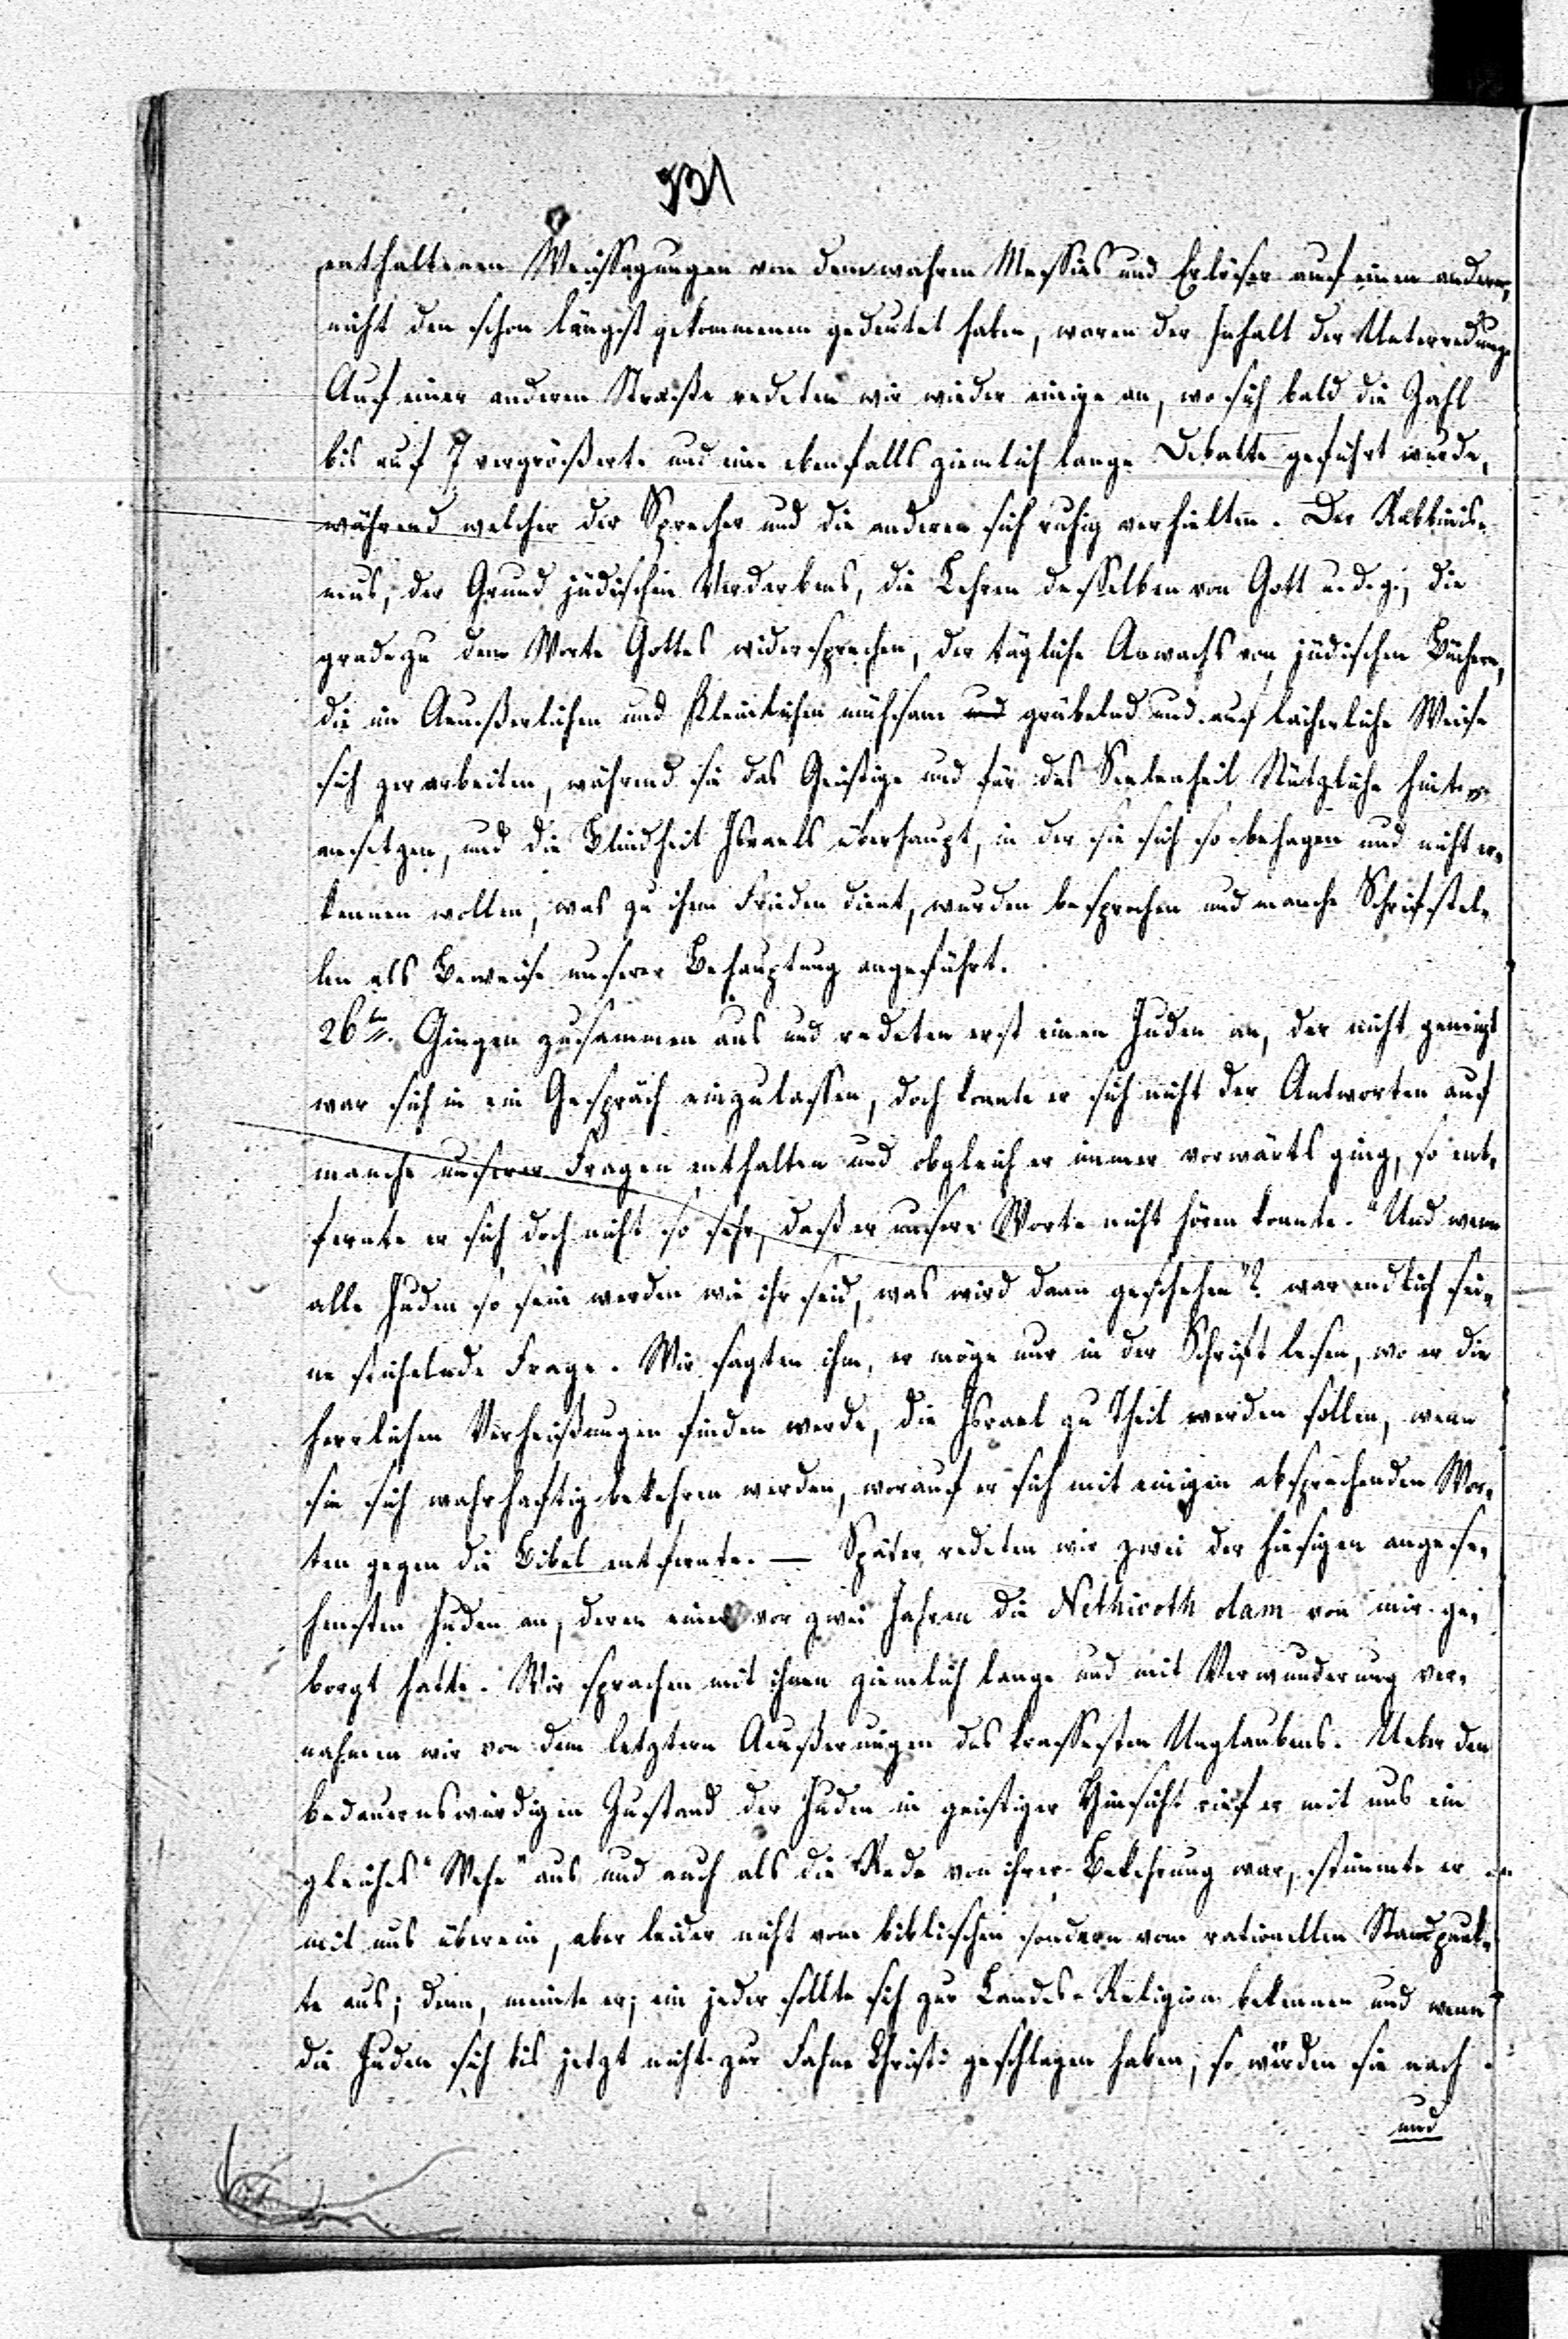 931
enthaltenen Weissagungen von dem wahren Messias und Erlöser auf einen andern,
nicht den schon längst gekommenen gedeutet haben, waren der Inhalt der Unterredung.
Auf einer anderen Straße redeten wir wieder einige an, wo sich bald die Zahl
bis auf 7 vergrößerte und eine ebenfalls ziemlich lange Debatte geführt wurde,
während welcher der Sprecher und die anderen sich ruhig verhielten. Der Rabbinis-
mus, der Grund jüdischen Verderbens, die Lehren desselben von Gott u. d. g., die
gradezu dem Worte Gottes widersprechen, der tägliche Anwachs von jüdischen Büchern,
die im Aeußerlichen und Kleinlichen mühsam und grübelnd und auf lächerliche Weise
sich zerarbeiten, während sie das Geistige und für das Seelenheil Nützliche hinten
ansetzen, und die Blindheit Israels überhaupt, in der sie sich so behagen und nicht er-
kennen wollen, was zu ihrem Frieden dient, wurden besprochen und manche Schriftstel-
len als Beweise unserer Behauptung angeführt.
26ten. Gingen zusammen aus und redeten erst einen Juden an, der nicht geneigt
war sich in ein Gespräch einzulassen, doch konnte er sich nicht der Antworten auf
manche unserer Fragen enthalten und obgleich er immer vorwärts ging, so ent-
fernte er sich doch nicht so sehr, daß er unsere Worte nicht hören konnte. "Und wenn
alle Juden so sein werden wie ihr seid, was wird dann geschehen"? war endlich sei-
ne stichelnde Frage. Wir sagten ihm, er möge nur in der Schrift lesen, wo er die
herrlichen Verheißungen finden werde, die Israel zu Theil werden sollen, wenn
sie sich wahrhaftig bekehren werden, worauf er sich mit einigen absprechenden Wor-
ten gegen die Bibel entfernte. — Später redeten wir zwei der hiesigen angese-
hensten Juden an, deren einer vor zwei Jahren die Nethivoth olam von mir ge-
borgt hatte. Wir sprachen mit ihnen ziemlich lange und mit Verwunderung ver-
nahmen wir von dem letztern Aeußerungen des krassesten Unglaubens. Ueber den
bedauernswürdigen Zustand der Juden in geistiger Hinsicht rief er mit uns ein
gleiches "Wehe" aus und auch als die Rede von ihrer Bekehrung war, stimmte er
mit uns überein, aber leider nicht vom biblischen sondern vom rationellen Standpunk-
te aus; denn, meinte er, ein jeder sollte sich zur Landes-Religion bekennen und wenn
die Juden sich bis jetzt nicht zur Fahne Christi geschlagen haben, so würden sie nach
und